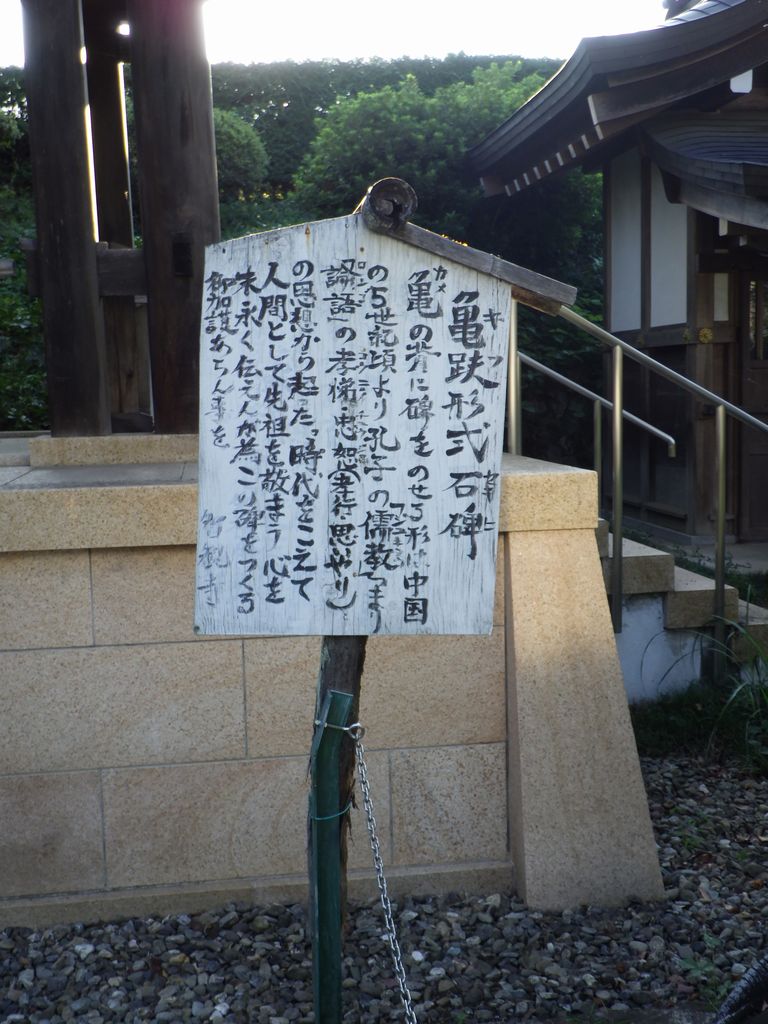 亀趺形式石碑
亀の背に碑をのせる形は中国
の5世紀頃より孔子の儒教つまり
論語の孝悌・忠恕(孝行・思やり)
の思想から起った。時代をこえて
人間として先祖を敬まう心を
末永く伝えんが為この碑をつくる
御加護あらん事を
智観寺